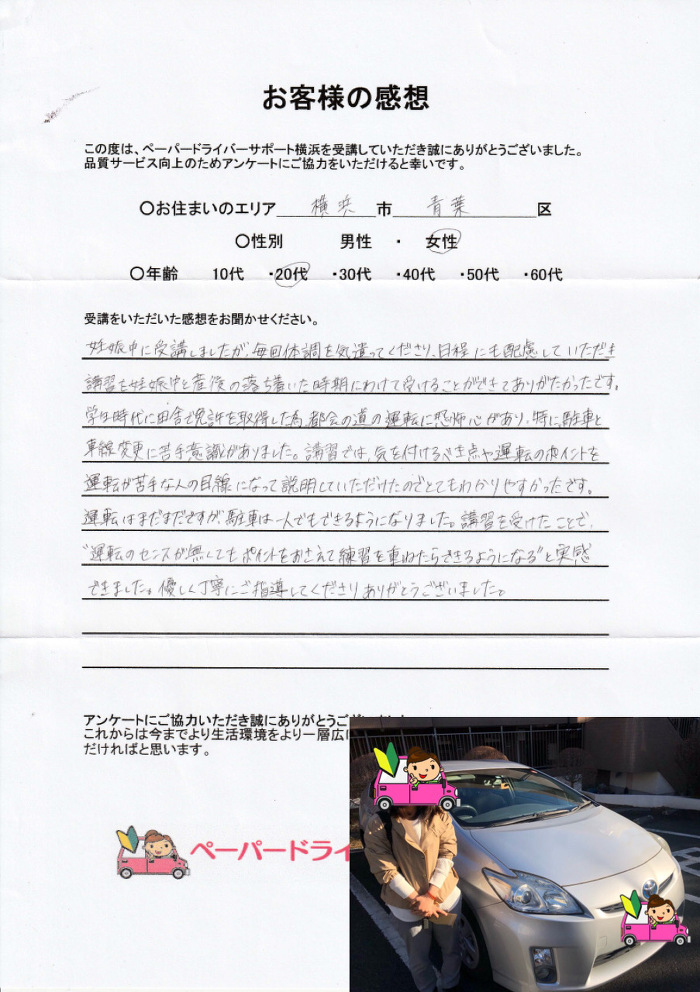 お客様の感想
この度は、ペーパードライバーサポート横浜を受講していただき誠にありがとうございました。
品質サービス向上のためアンケートにご協力をいただけると幸いです。
〇お住まいのエリア 横浜 市 青葉 区
〇性別 男性 ・ 女性
〇年齢 10代 ・20代 ・30代 ・40代 ・50代 ・60代
受講をいただいた感想をお聞かせください。
妊娠中に受講しましたが、毎回体調を気遣ってくださり、日程にも配慮していただき
講習を妊娠中と産後の落ち着いた時期にわけて受けることができてありがたかったです。
学生時代に田舎で免許を取得した為、都会の道の運転に恐怖心があり、特に駐車と
車線変更に苦手意識がありました。講習では、気を付けるべき点や運転のポイントを
運転が苦手な人の目線になって説明していただけたのでとてもわかりやすかったです。
運転はまだまだですが、駐車は一人でもできるようになりました。講習を受けたことで、
"運転のセンスが無くてもポイントをおさえて練習を重ねたらできるようになる"と実感
できました。優しく丁寧にご指導してくださりありがとうございました。
アンケートにご協力いただき誠にありがとうござ
これからは今までより生活環境をより一層広
だければと思います。
ペーパードライ